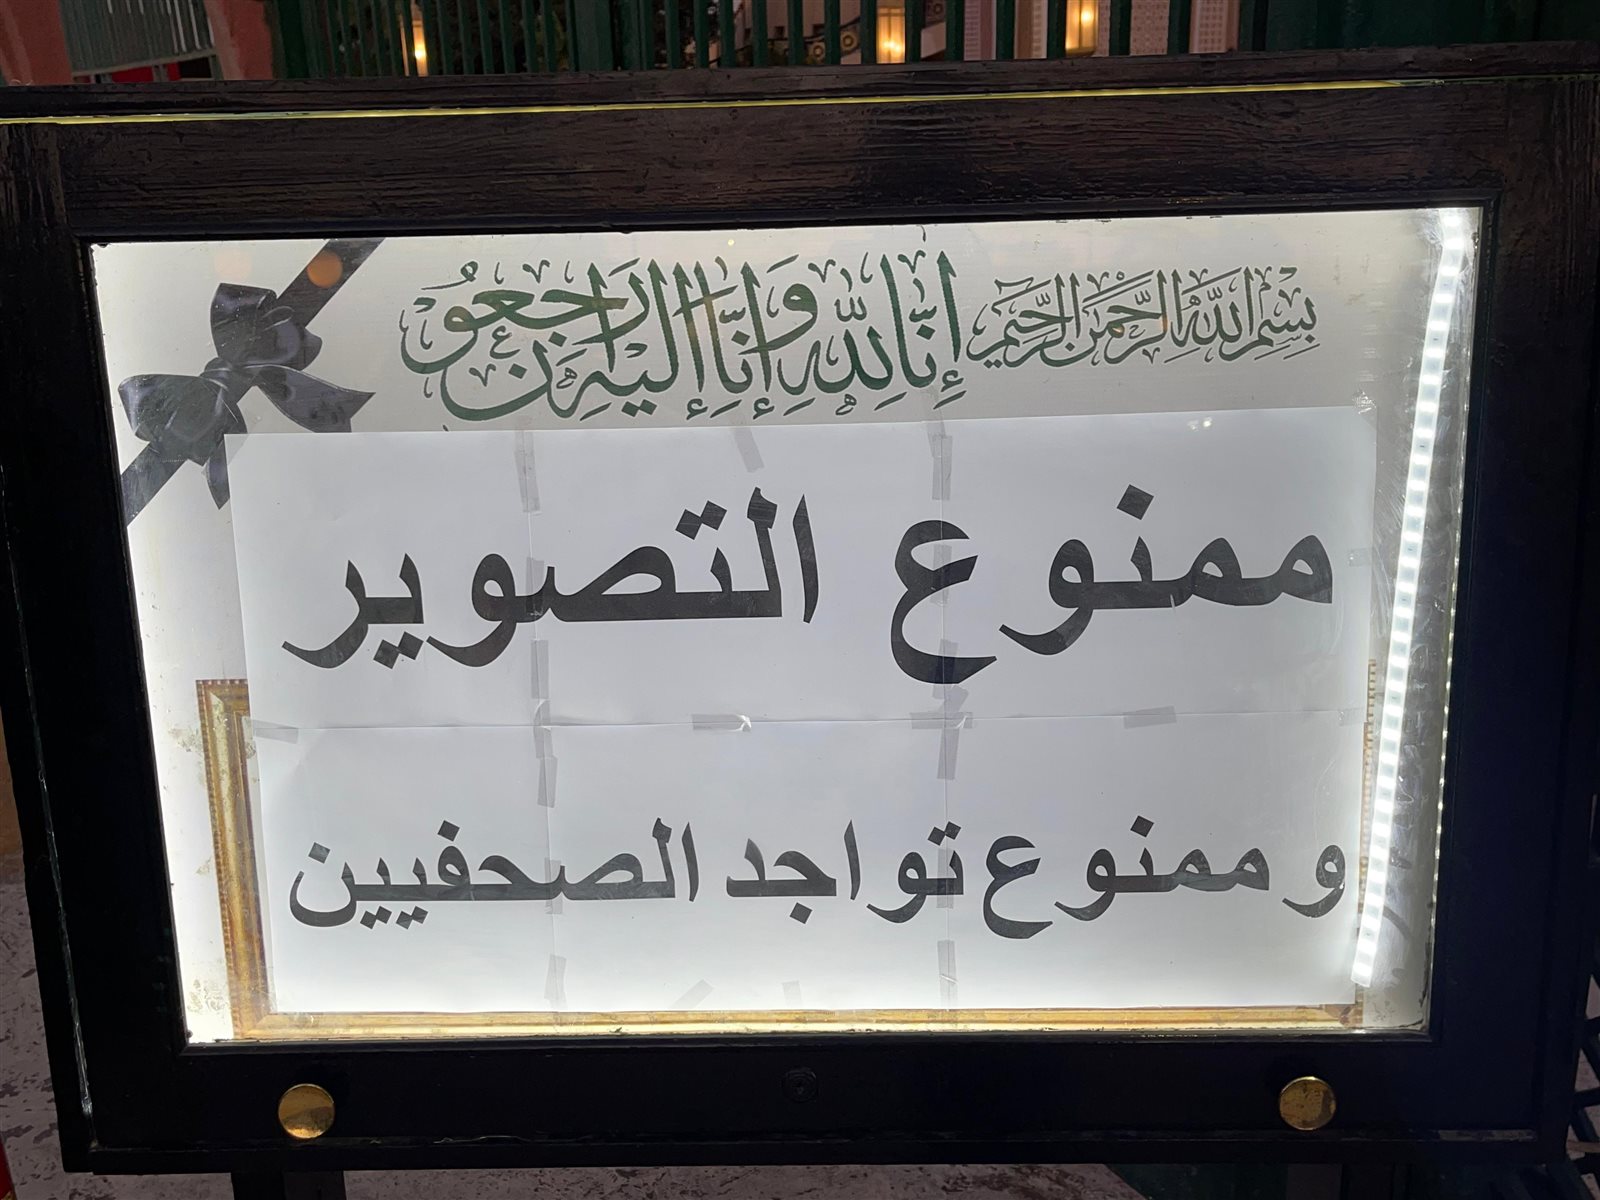 بِسْمِ اللَّهِ الرَّحْمَنِ الرَّحِيمِ
إِنَّا لِلَّهِ وَإِنَّا إِلَيْهِ رَاجِعُونَ
ممنوع التصوير
و ممنوع تواجد الصحفيين